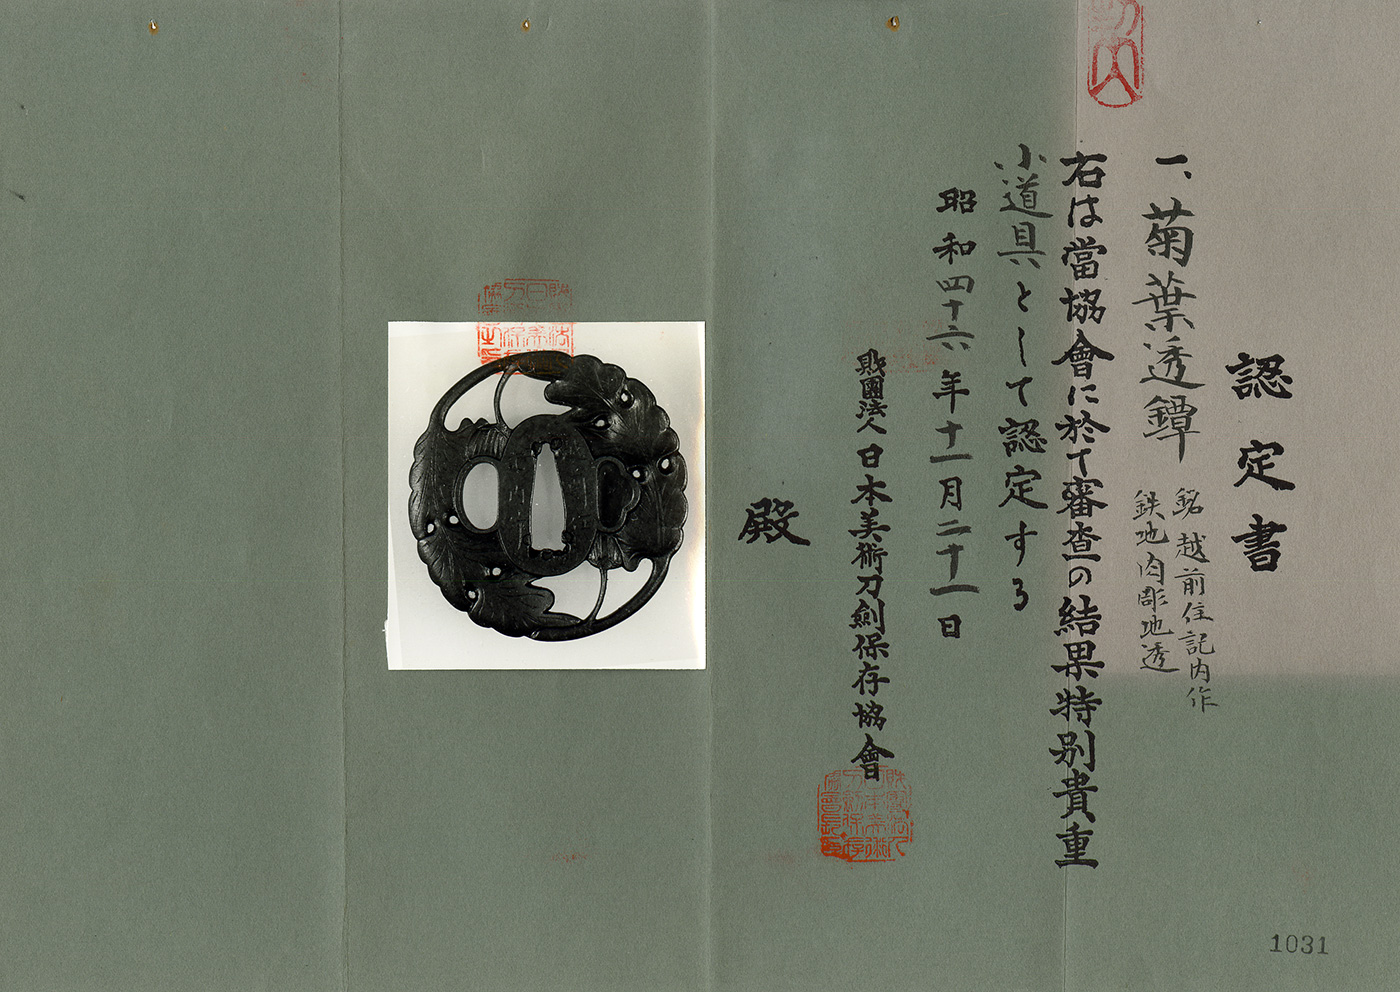 認定書
一、菊葉透鐔
銘越前住記内作
鉄地肉彫地透
右は當協會に於て審査の結果特別貴重
小道具として認定する
昭和四十六年十一月二十一日
財團法人日本美術刀劍保存協會
殿
1031